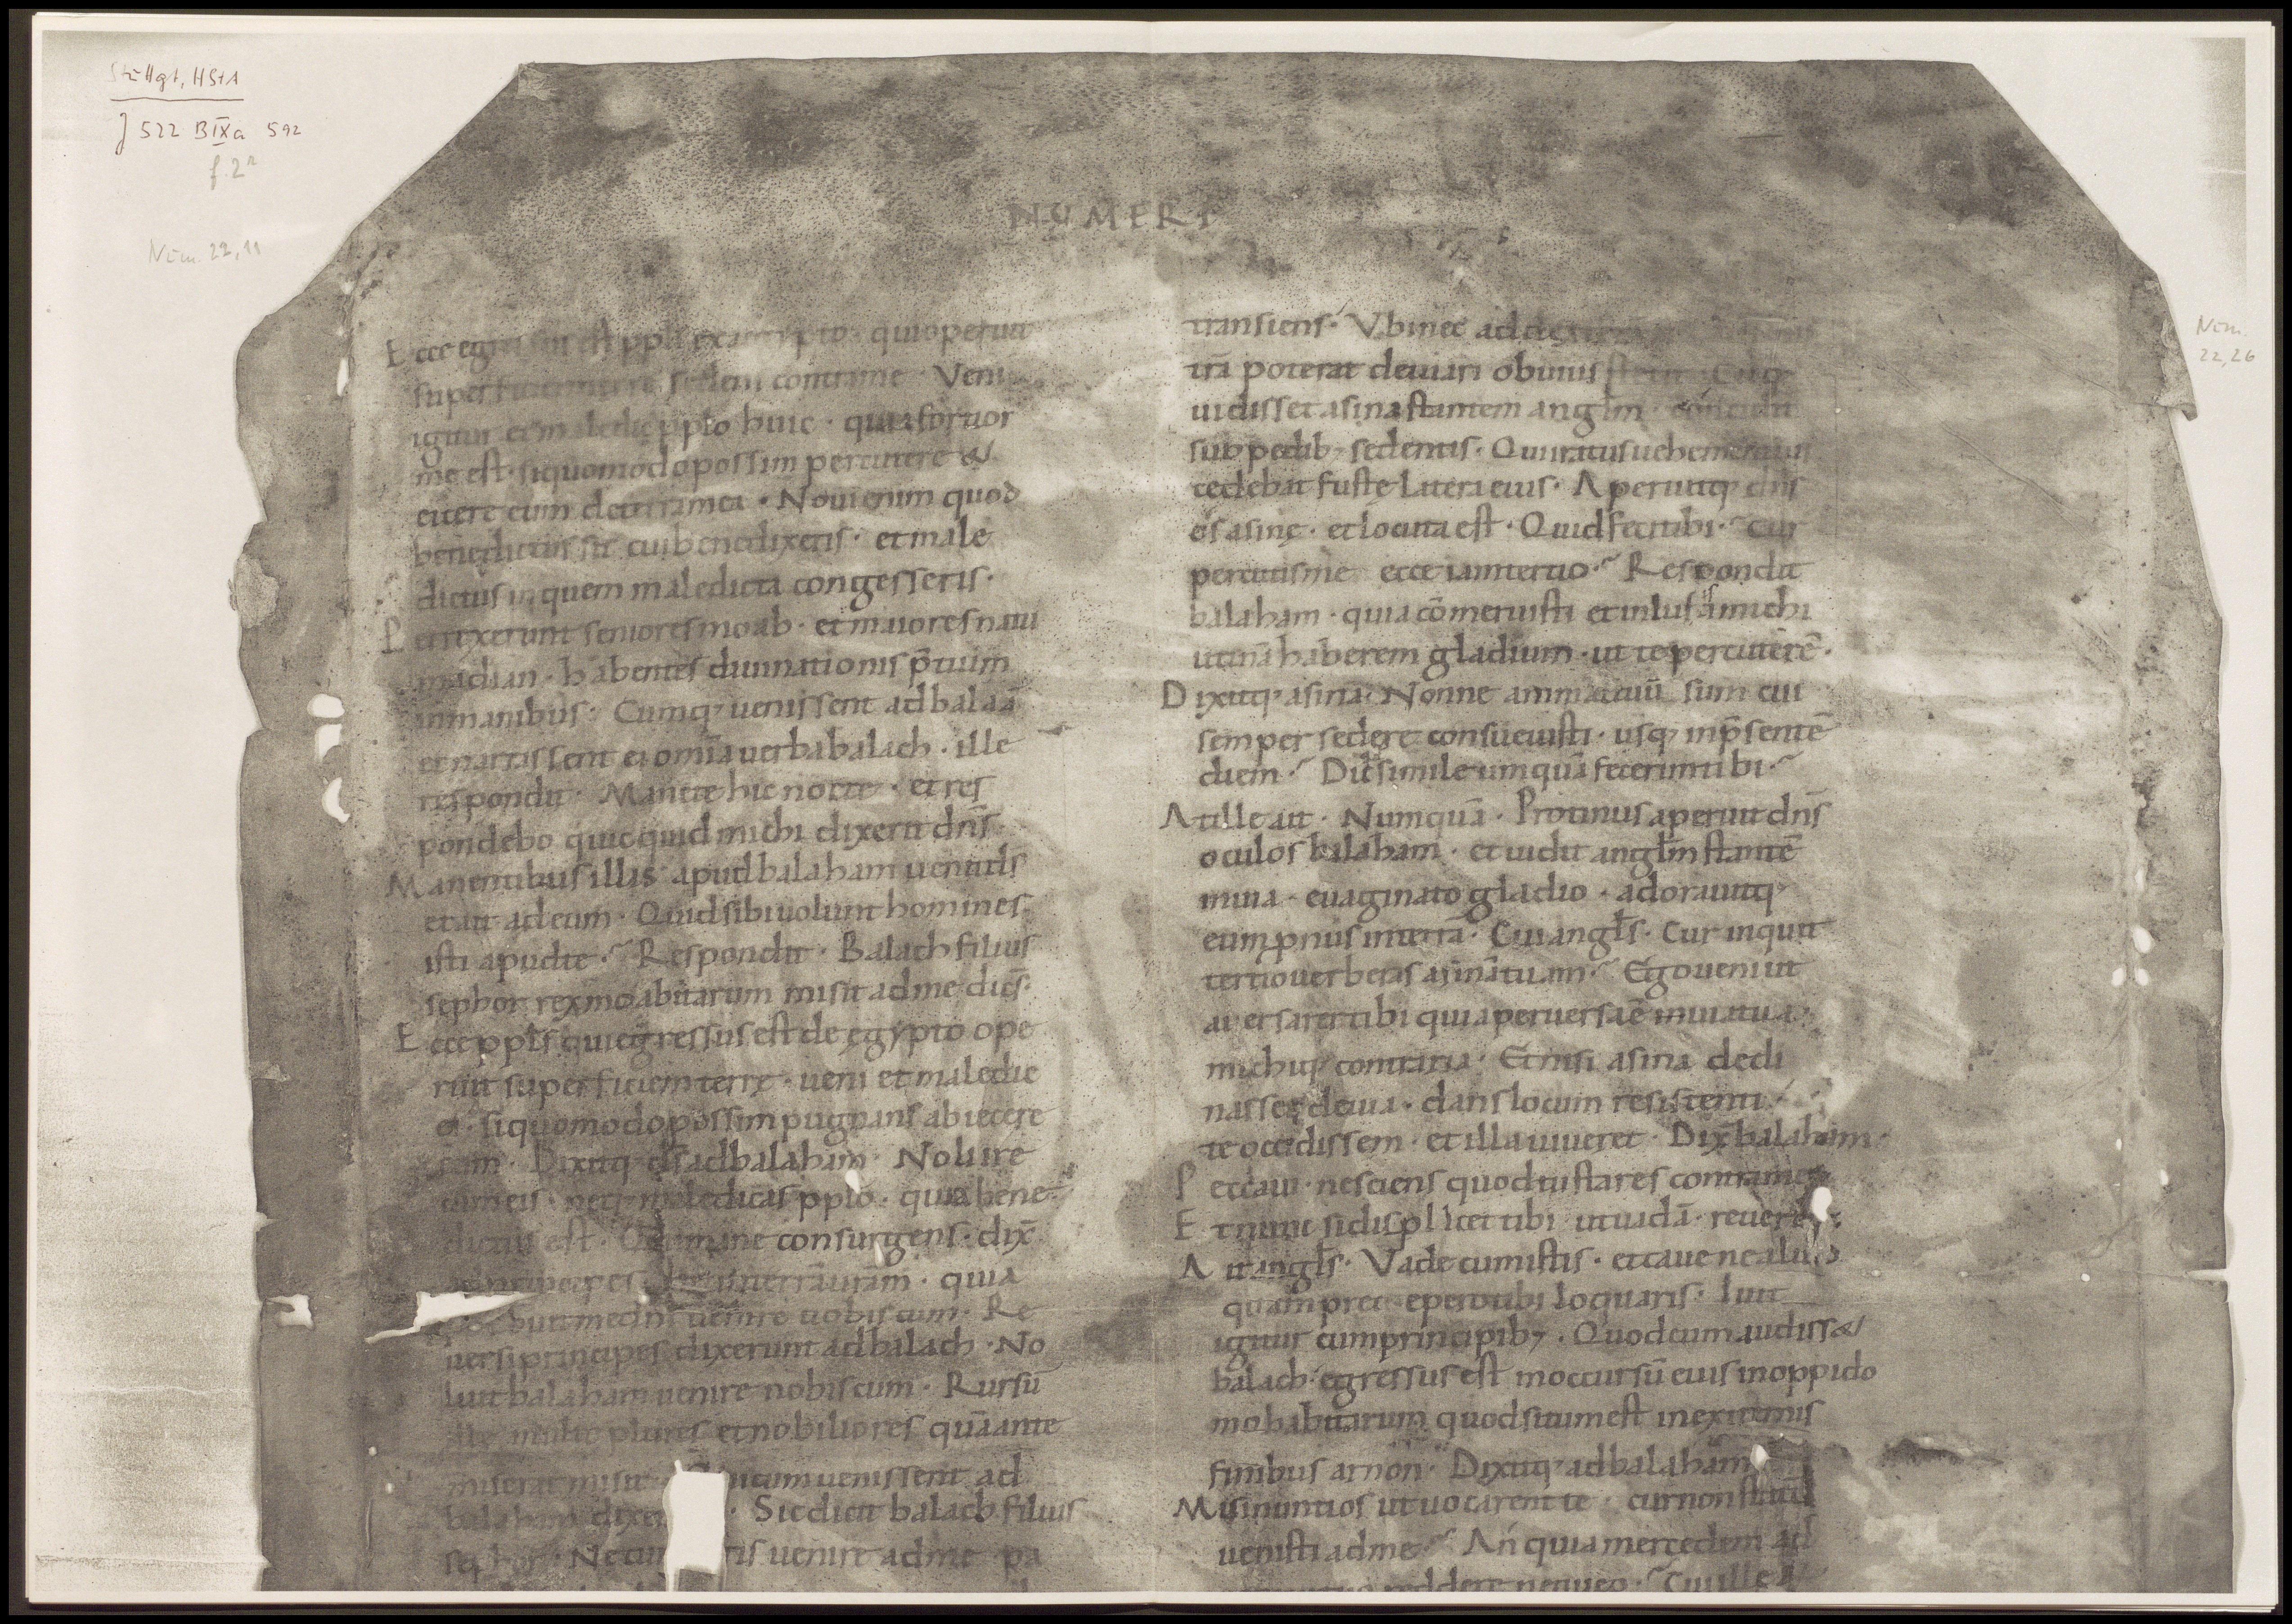 Stuttgt, HStA
J 522 B IXa 592
f. 2r
Num. 22,11
Num.
22,26
NUMERI
Ecce egressus est ppls ex aegypto · qui operuit
super faciem terre sedens contra me · Veni
igitur et maledic pplo huic · quia fortior
me est · si quomodo possim percutere &
eicere eum de terra mea · Novi enim quod
benedictus sit cui benedixeris · et male
dictus in quem maledicta congesseris ·
Perrexerunt seniores moab · et maiores natu
madian · habentes diuinationis p̄tium
in manibus · Cumq; uenissent ad balaā
et narrassent ei omnia uerba balach · ille
respondit · Manete hic nocte · et res
pondebo quicquid michi dixerit dn̄s
Manentibus illis apud balaham uenit ds̄
et ait ad eum · Quid sibi uolunt homines
isti apud te · Respondit · Balach filius
sephor rex moabitarum misit ad me dicēs ·
Ecce ppl̄s qui egressus est de egypto ope
ruit superficiem terrę · ueni et maledic
ei · si quomodo possim pugnans abiecere
eum · Dixitq; ds̄ ad balaham · Noli ire
cum eis · neq; maledicas pplo · quia bene
dictus est · Qui mane consurgens · dix̄
ad principes · Ite in terrā uram · quia
buit me dn̄s uenire uobiscum · Re
uersi principes dixerunt ad balach · No
luit balaham uenire nobiscum · Rursū
ille multo plures et nobiliores quā ante
miserat misit · cum uenissent ad
balaham · Sic dicit balach filius
sephor · Ne uenire ad me pa
transiens · Vbi nec ad
trā poterat deuiari obuius
uidisset asina stantem anglm · concidit
sub pedib; sedentis · Qui iratus uehementius
cedebat fuste latera eius · Aperuitq; dn̄s
os asinę · et locuta est · Quid feci tibi · cur
percutis me ecce iam tertio · Respondit
balaham · quia cōmeruisti et inlusisti michi
utinā haberem gladium · ut te percuterē ·
Dixitq; asina · Nonne animal tuū sum cui
semper sedere consueuisti · usq; in p̄sentē
diem · Dic simile umquā fecerim tibi ·
At ille ait · Numquā · Protinus aperuit dn̄s
oculos balaham · et uidit anglm stantē
in uia · euaginato gladio · adorauitq;
eum pronus in terrā · Cui angls · Cur inquit
tertio uerberas asinā tuam · Ego ueni ut
aduersarer tibi quia peruersa ē uia tua ·
michiq; contraria · Et nisi asina decli
nasset de uia · dans locum resistenti ·
te occidissem · et illa uiueret · Dix̄ balaham ·
Peccaui · nesciens quod tu stares contra me
Et nunc si displicet tibi ut uadā · reuertar
Ait angls · Vade cum istis · et caue ne aliud
quam precepero tibi loquaris · Iuit
igitur cum principib; · Quod cum audiss&
balach · egressus est in occursū eius in oppido
mohabitarum quod situm est in extremis
finibus arnon · Dixitq; ad balaham
Misi nuntios ut uocarent te · cur non statim
uenisti ad me · An quia mercedem ad
reddere nequeo · Cui ille